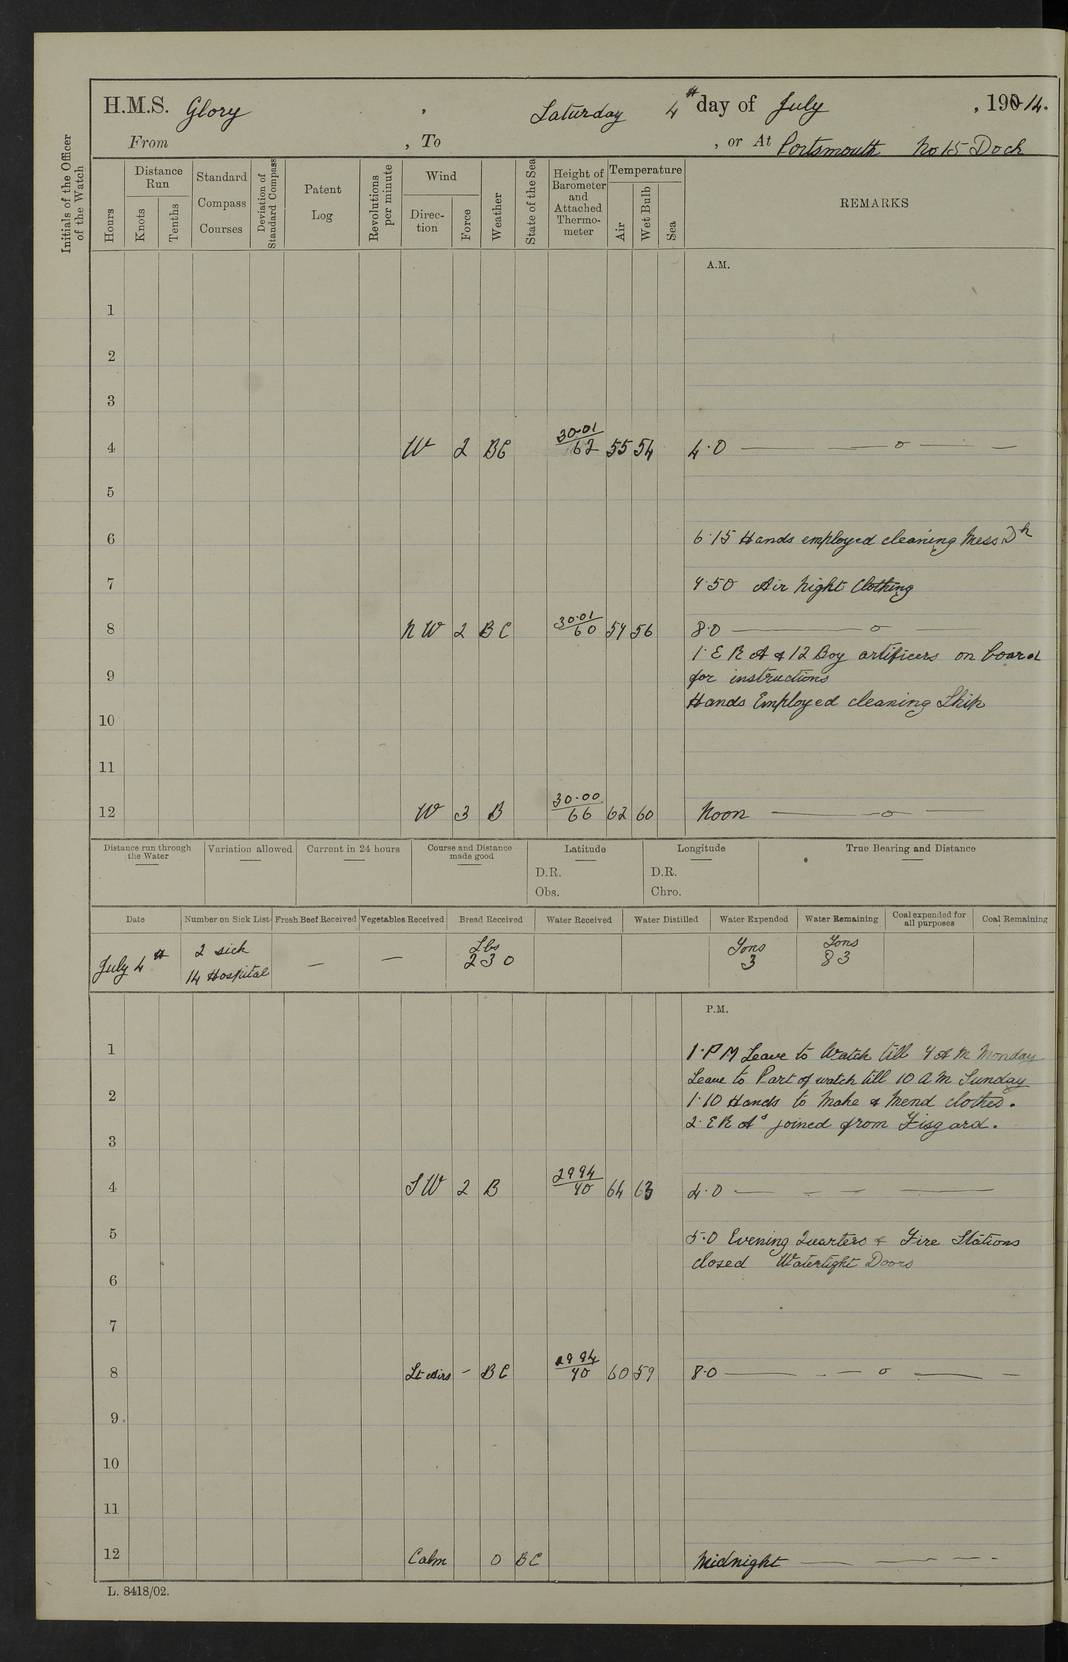 H.M.S. Glory , Saturday 4th day of July , 190 14.
From , To , or At Portsmouth No 15 Dock
Initials of the Officer of the Watch
Hours
Distance Run
Knots
Tenths
Standard Compass Courses
Deviation of Standard Compass
Patent Log
Revolutions per minute
Wind
Direction
Force
Weather
State of the Sea
Height of Barometer and Attached Thermometer
Temperature
Air
Wet Bulb
Sea
REMARKS
A.M.
1
2
3
4 W 2 BC 30.01/62 55 54 4.0 — o —
5
6 6.15 Hands employed cleaning Mess Dk
7 7.50 Air Night Clothing
8 NW 2 BC 30.01/60 57 56 8.0 — o —
1. E R A & 12 Boy artificers on board
9 for instructions
Hands Employed cleaning Ship
10
11
12 W 3 B 30.00/66 62 60 Noon — o —
Distance run through the Water
Variation allowed
Current in 24 hours
Course and Distance made good
Latitude
D.R.
Obs.
Longitude
D.R.
Chro.
True Bearing and Distance
Date Number on Sick List Fresh Beef Received Vegetables Received Bread Received Water Received Water Distilled Water Expended Water Remaining Coal expended for all purposes Coal Remaining
July 4th 2 sick — — Lbs Tons Tons
14 Hospital 230 3 83
P.M.
1 1. PM Leave to Watch till 7 AM Monday
Leave to Part of watch till 10 AM Sunday
2 1.10 Hands to Make & Mend clothes.
2. E R As joined from Fisgard.
3
4 SW 2 B 2994/70 64 63 4.0 —
5 5.0 Evening Quarters & Fire Stations
closed Watertight Doors
6
7
8 Lt Airs – BC 2994/70 60 59 8.0 — o —
9
10
11
12 Calm 0 BC Midnight —
L. 8418/02.